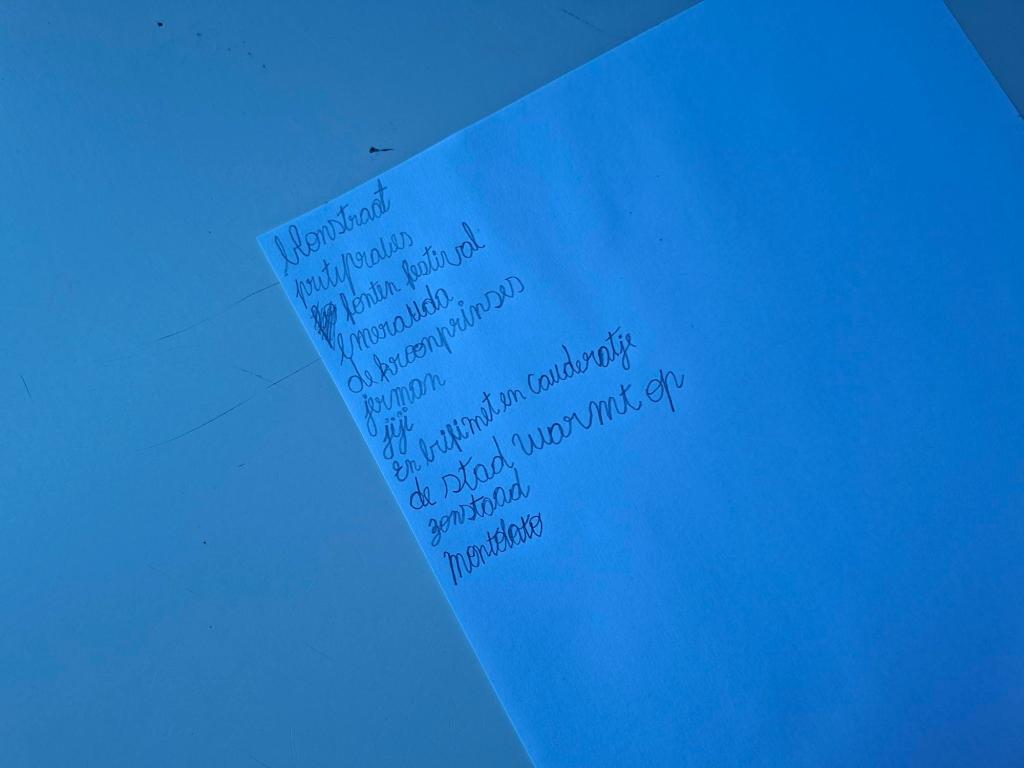 klonstraat
prutipraties
fonten festival
Emerauda
de kroonprinses
jerman
jiji
En brifimet en cauderatje
de stad warmt op
zonstaad